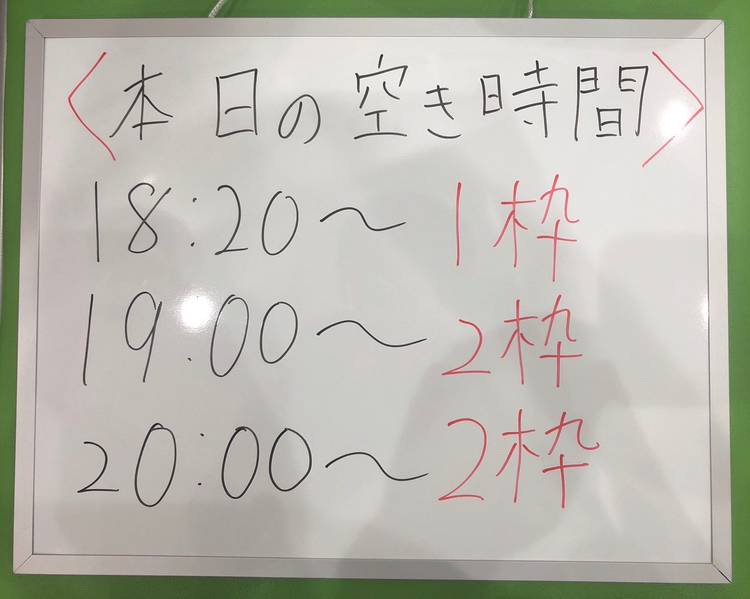 〈本日の空き時間〉
18:20〜 1枠
19:00〜 2枠
20:00〜 2枠